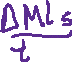 ΔMLs
t